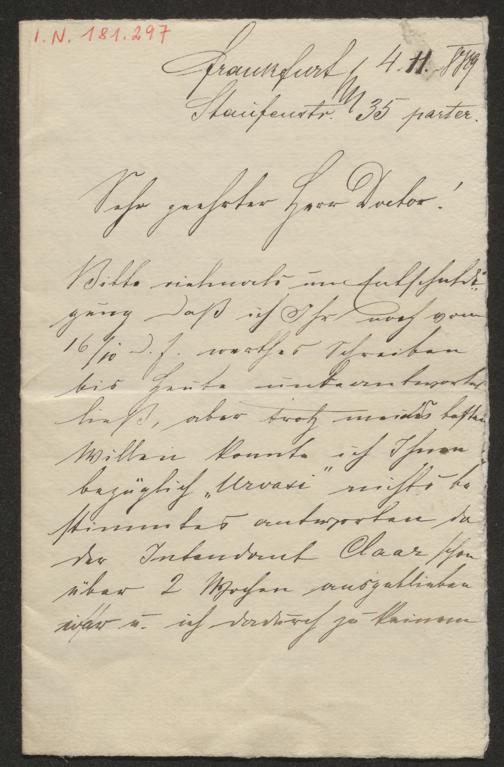 I.N. 181.297
Frankfurt a/M 4. 11. 1889
Staufenstr. 35 parter.
Sehr geehrter Herr Doctor!
Bitte vielmals um Entschuldi-
gung daß ich Ihr noch vom
16/10 d. J. werthes Schreiben
bis heute unbeantwortet
ließ, aber trotz meines besten
Willen konnte ich Ihnen
bezüglich „Urvasi" nichts be
stimmtes antworten da
der Intendant Claar schon
über 2 Wochen ausgeblieben
war u. ich dadurch zu keinem